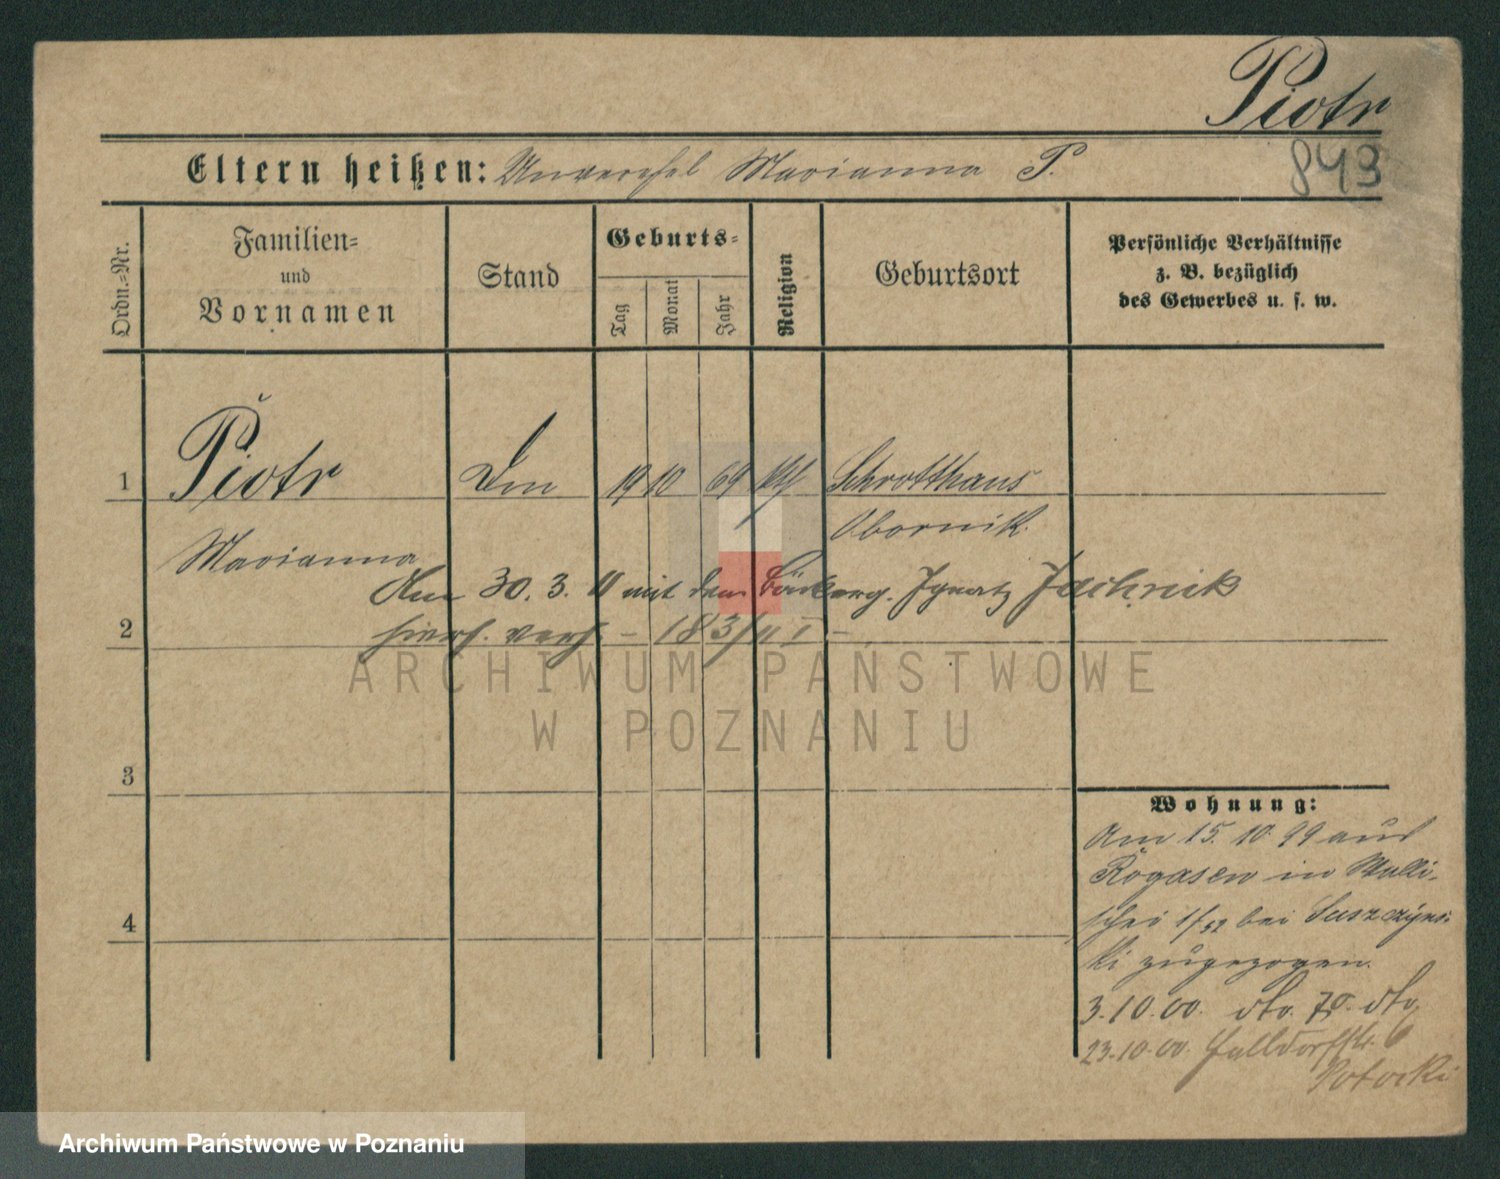 Piotr
843
Eltern heißen: Unverehel Marianna P.
Ordn.=Nr.
Familien=
und
Vornamen
Stand
Geburts=
Tag
Monat
Jahr
Religion
Geburtsort
Persönliche Verhältnisse
z. B. bezüglich
des Gewerbes u. s. w.
1 Piotr 19 10 69 kth Schrotthaus
Obornik
Marianna
Am 30. 3. mit dem Ignatz Jachnik
2 hiers. verh. – 183/
3
4
Wohnung:
Am 15. 10. 99 aus
Rogasen in Walli-
schei 1/52 bei Suszczyns-
ki zugezogen.
3.10.00. dto. dto
23.10.00. Halldorfstr. 6
Potocki
ARCHIWUM PAŃSTWOWE
W POZNANIU
Archiwum Państwowe w Poznaniu